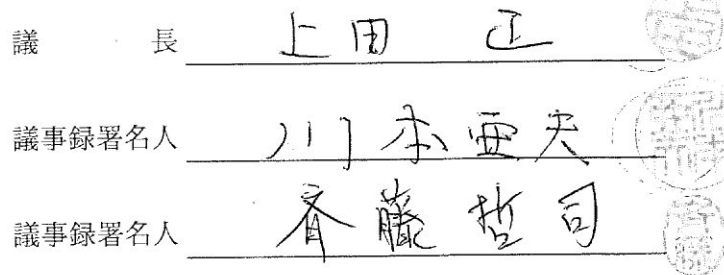 議長 上田 正
議事録署名人 川本亜夫
議事録署名人 斉藤哲司